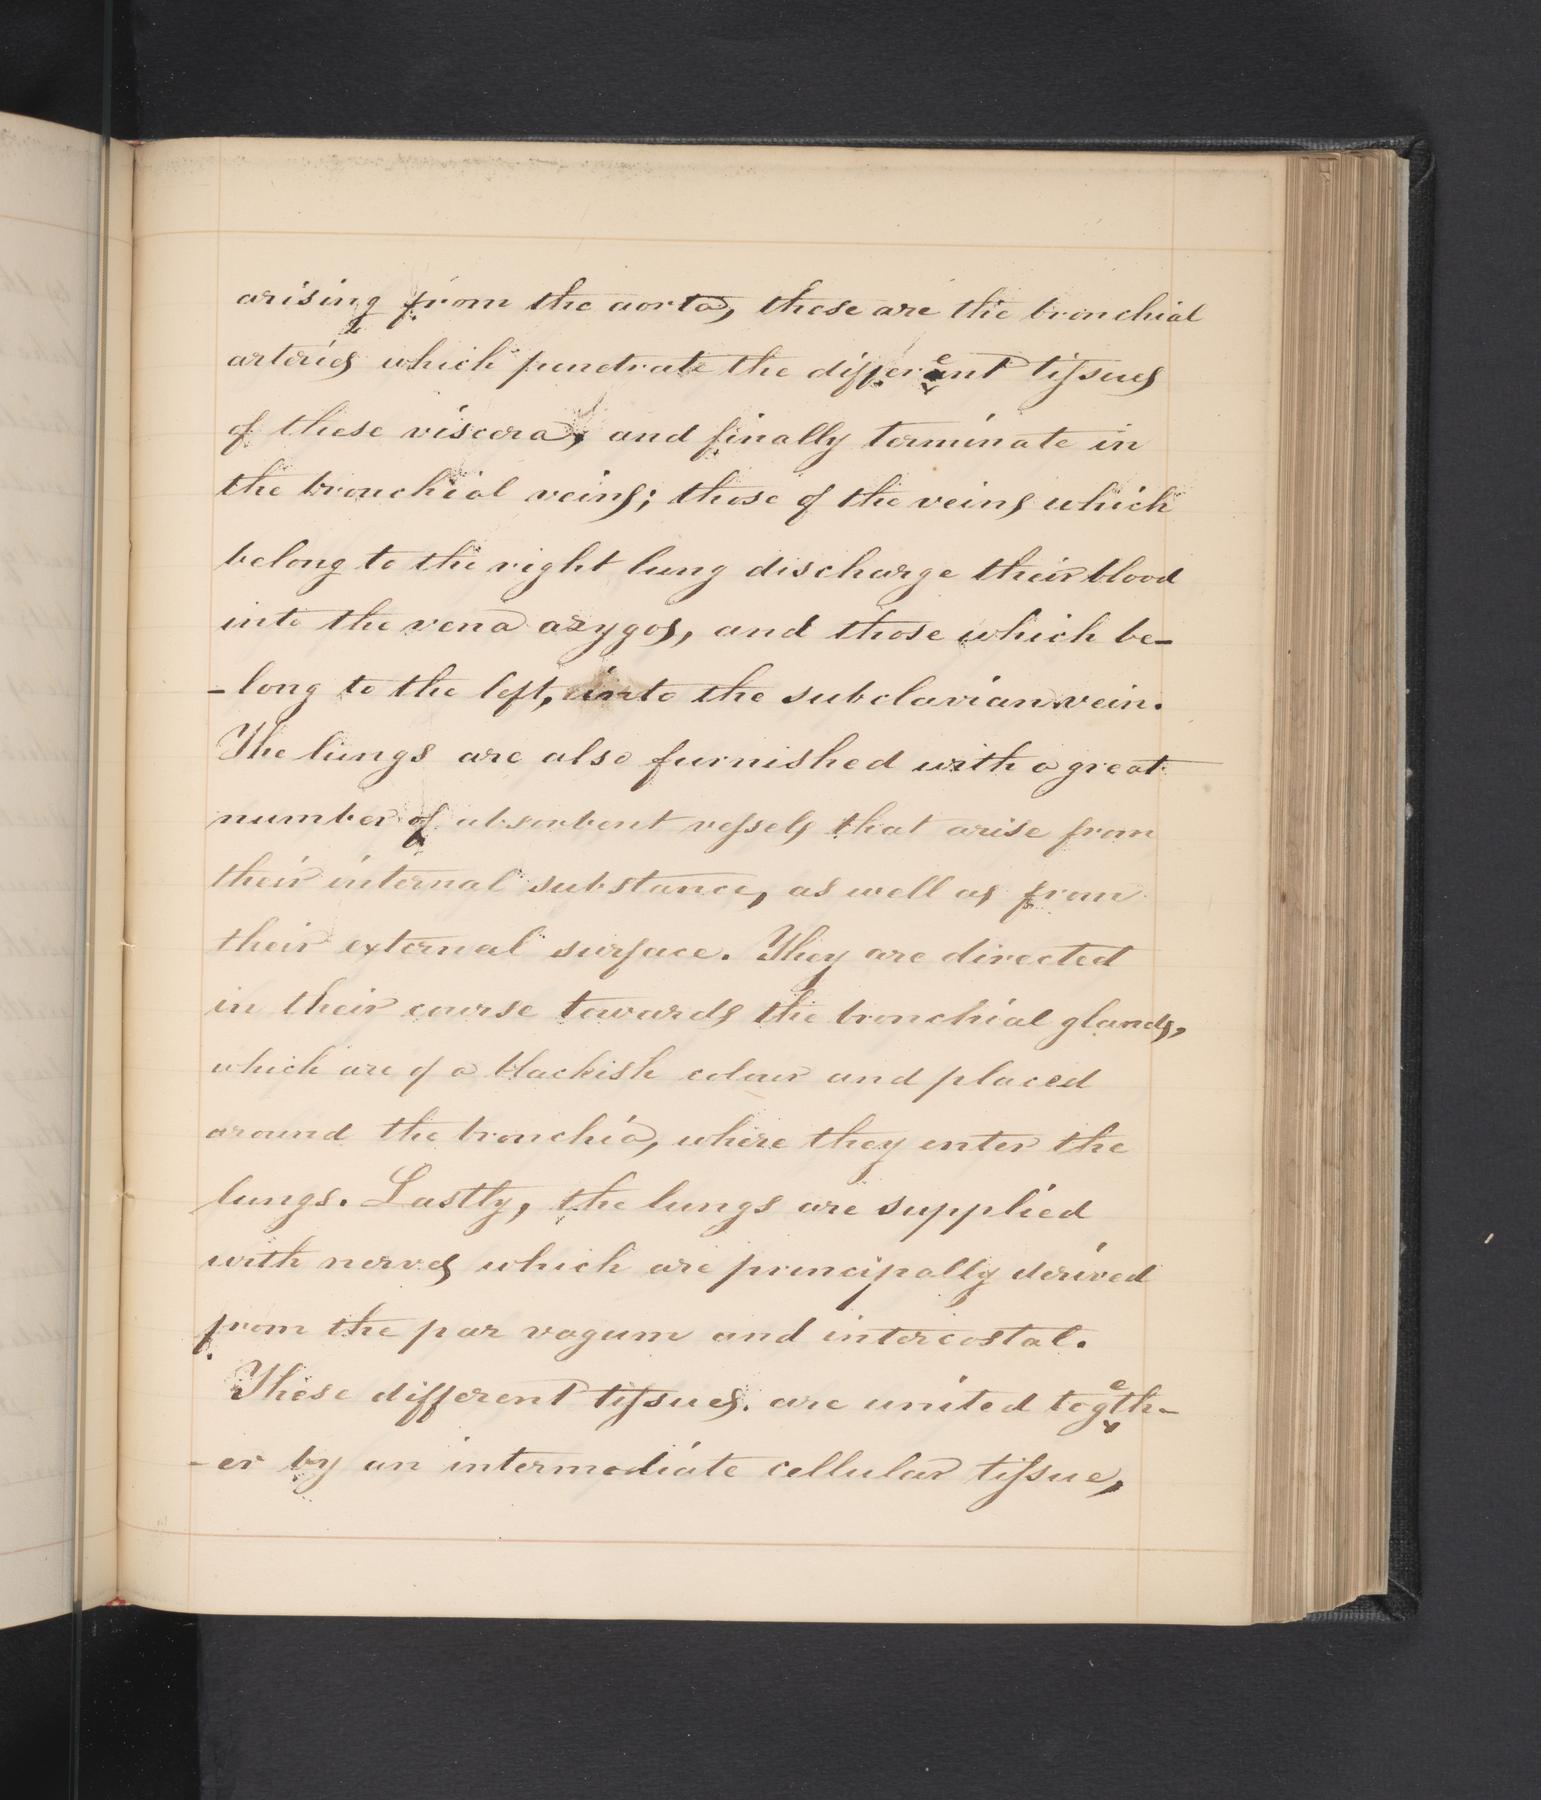 arising from the aorta, these are the bronchial
arteries which penetrate the different tissues
of these viscera, and finally terminate in
the bronchial veins; those of the veins which
belong to the right lung discharge their blood
into the vena azygos, and those which be-
-long to the left, into the subclavian vein.
The lungs are also furnished with a great
number of absorbent vessels that arise from
their internal substance, as well as from
their external surface. They are directed
in their course towards the bronchial glands,
which are of a blackish colour and placed
around the bronchia, where they enter the
lungs. Lastly, the lungs are supplied
with nerves which are principally derived
from the par vagum and intercostal.
These different tissues. are united togeth-
-er by an intermediate cellular tissue,